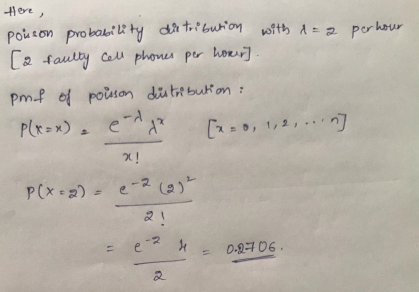 Here,
poisson probability distribution with λ = 2 per hour
[2 faulty cell phones per hour].
pmf of poisson distribution :
P(x = x) = e^-λ λ^x / x! [x = 0, 1, 2, ... n]
P(x = 2) = e^-2 (2)^2 / 2!
= e^-2 4 / 2 = 0.2706.